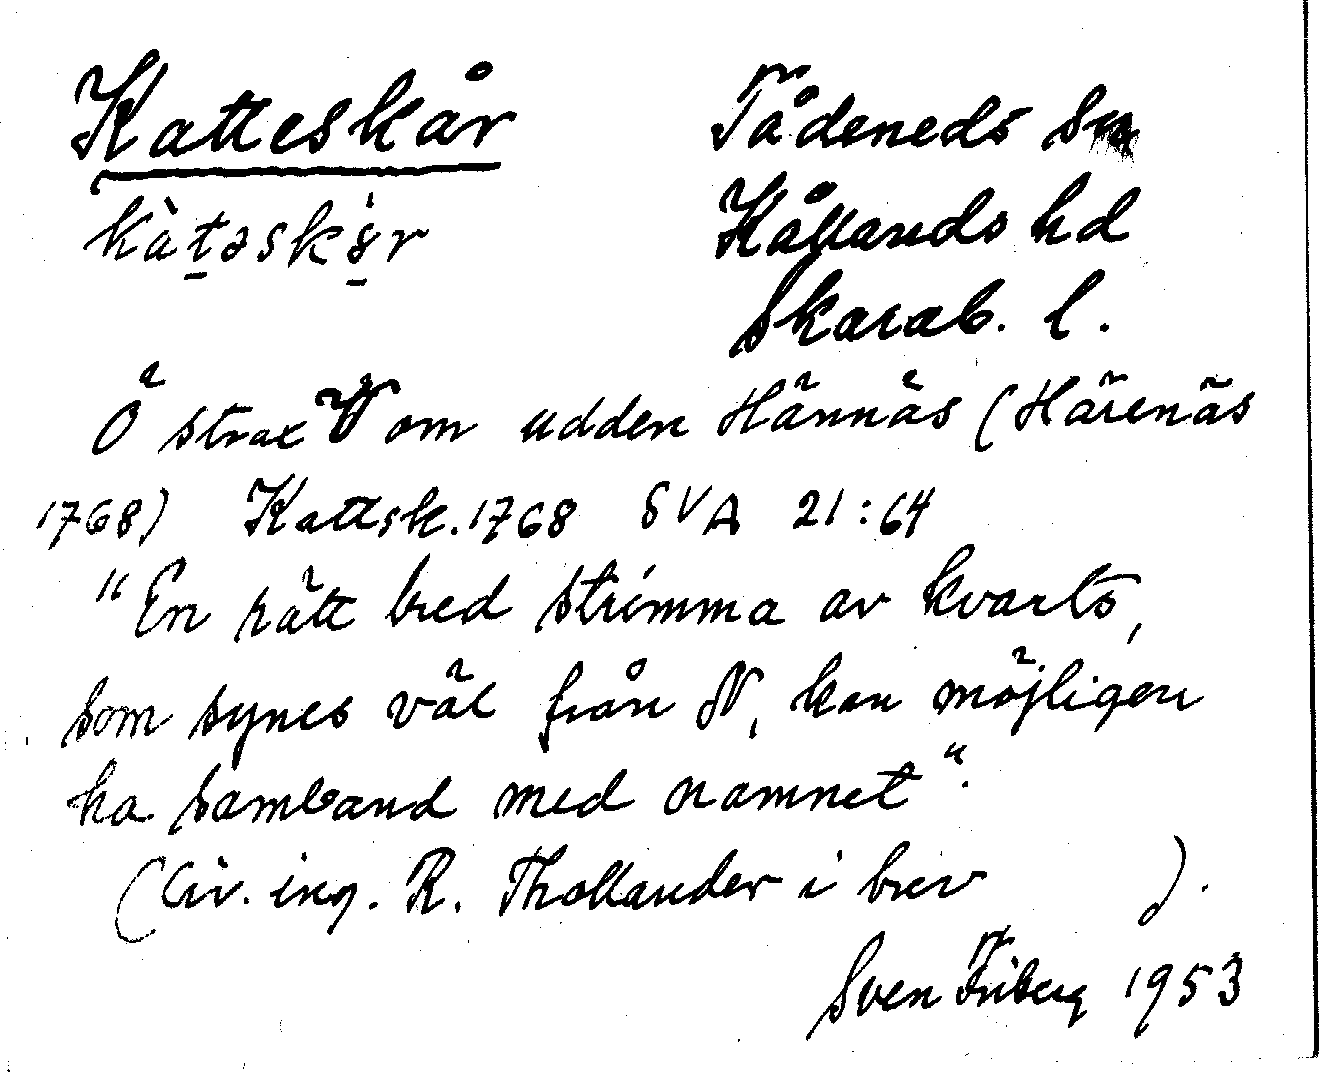 Katteskår
Tådeneds sn
kàtəskår
Kållands hd
Skarab. l.
Ö strax V om udden Hännäs (Härenäs
1768) Kattsk. 1768 SVA 21:64
"En rätt bred strimma av kvarts,
som synes väl från N, kan möjligen
ha samband med namnet".
(Civ. ing. R. Thollander i brev ).
Sven Friberg 1953